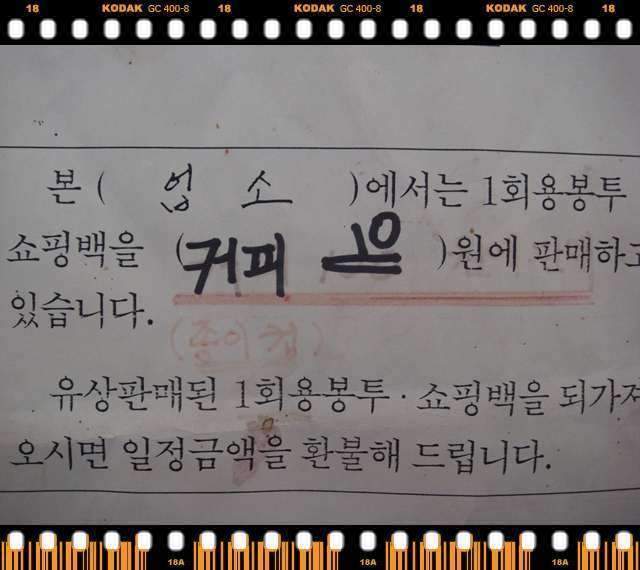 18 KODAK GC 400-8 18 KODAK GC 400-8 18 KODAK GC 400-8 18
본 ( 업 소 )에서는 1회용봉투
쇼핑백을 (커피 10 )원에 판매하고
있습니다.
(종이컵)
유상판매된 1회용봉투 · 쇼핑백을 되가져
오시면 일정금액을 환불해 드립니다.
18A 18A 18A